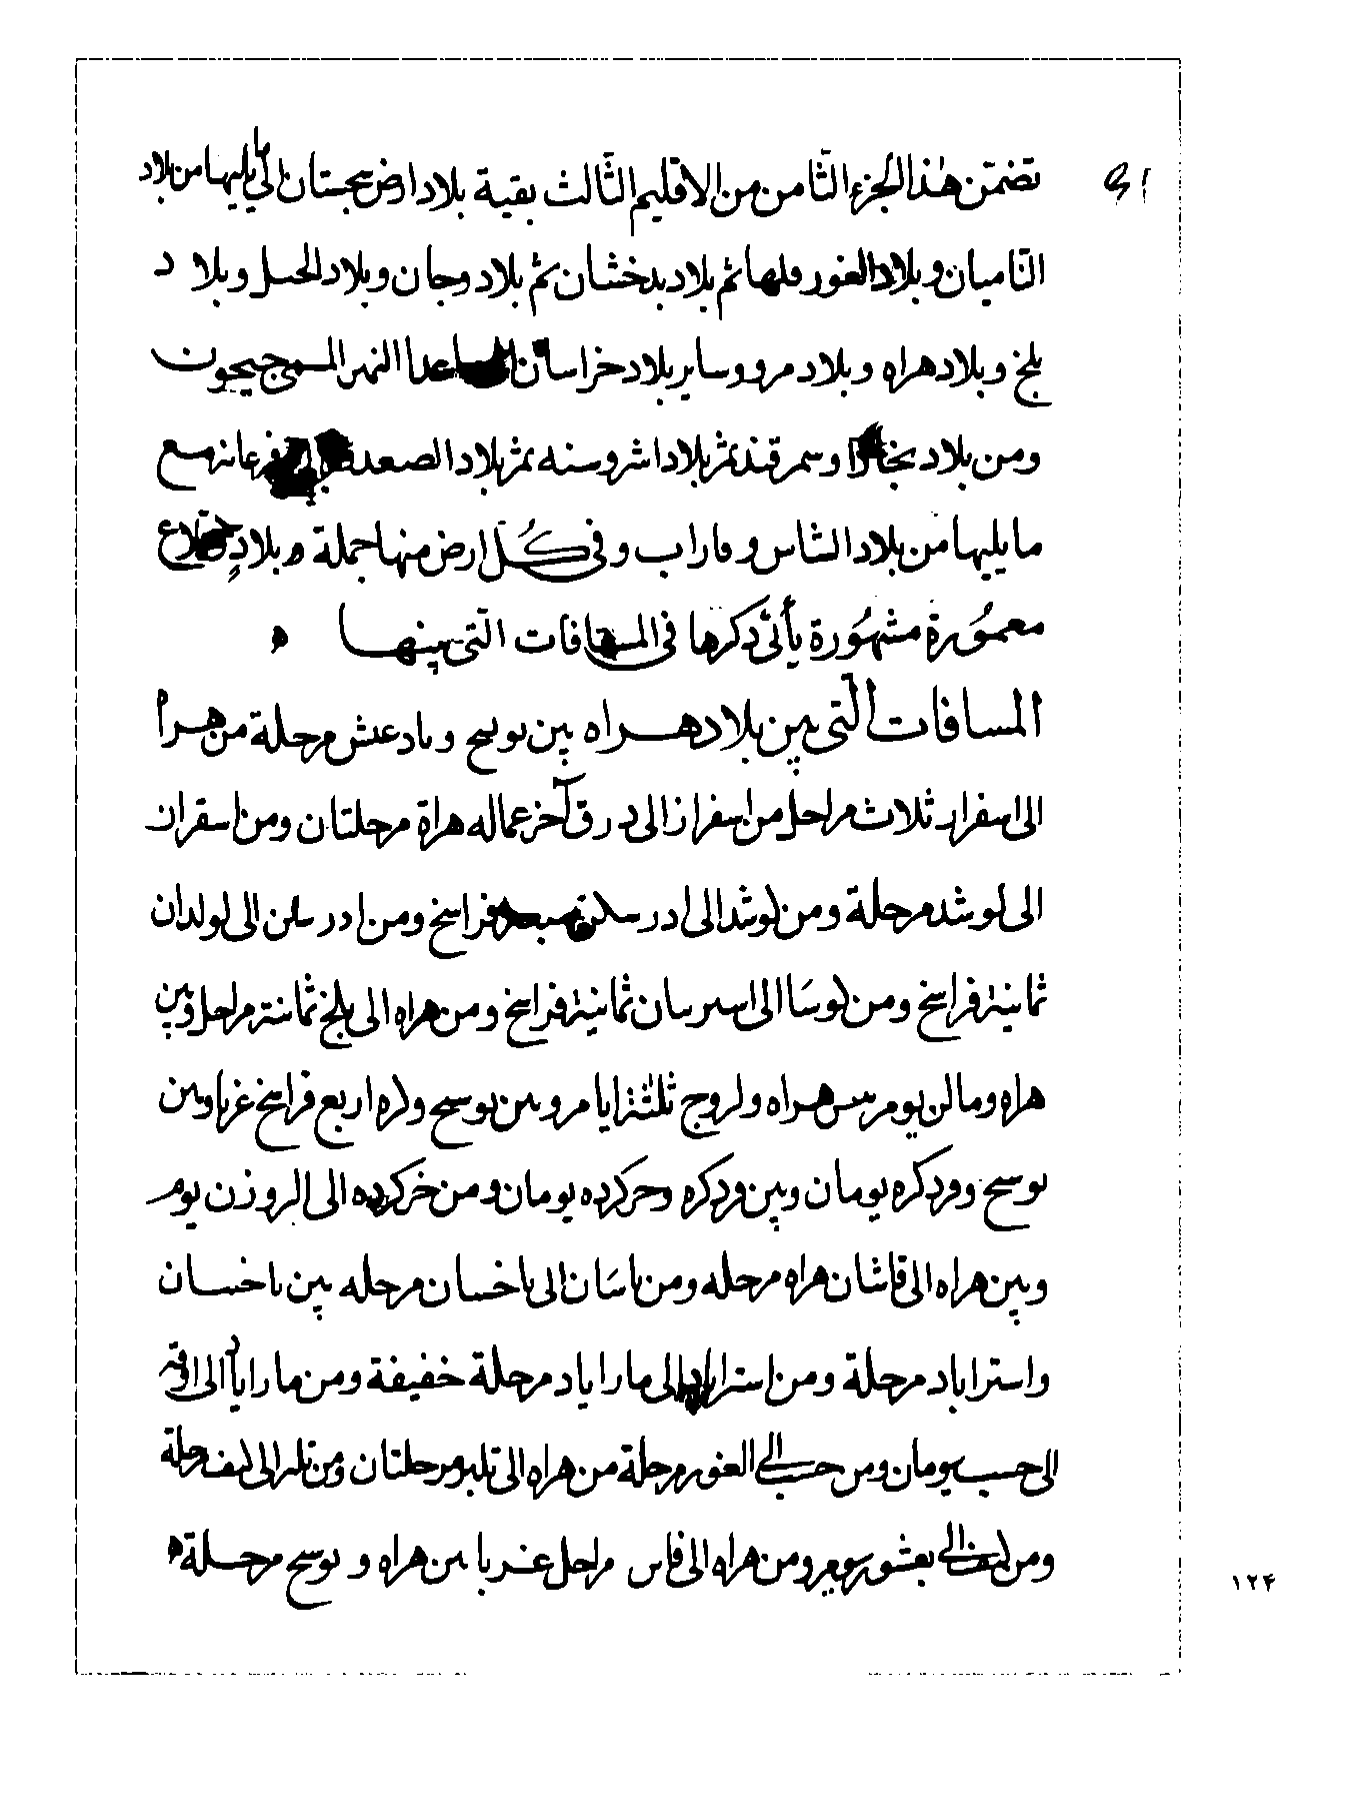 تضمّن هذا الجزء الثّامن من الاقليم الثّالث بقية بلاد ارض سجستان الى ما يليها من بلاد
الناميان وبلاد الغور فلها ثم بلاد بدخشان ثم بلاد وجان وبلاد الجبل وبلاد
بلخ وبلاد هراه وبلاد مرو وساير بلاد خراسان ما عدا النهر المسمى جيحون
ومن بلاد بخارا وسمرقند ثم بلاد اشروسنه ثم بلاد الصعد فرعانه مع
ما يليها من بلاد الشاس وفاراب وفي كُل ارض منها جملة وبلاد وقلاع
معمُورة مشهُورة يأتي ذكرها في المسافات الّتي بينها ه
المسافات الّتي بين بلاد هراه بين بوسح وبادعس مرحلة من هراه
الى اسفرار ثلاث مراحل من اسفراز الى درق آخر عماله هراة مرحلتان ومن اسفراز
الى لوشد مرحلة ومن لوشد الى ادرسكن سبعة فراسخ ومن ادرسكن الى لولدان
ثمانية فراسخ ومن لوسَا الى اسرسان ثمانية فراسخ ومن هراه الى بلخ ثمانية مراحل وبين
هراه ومالن يوم هراه ولروج ثلثة ايام وبين بوسح ولره اربع فراسخ غربا وبين
بوسح وفردكره يومان وبين فردكره وخركرده يومان ومن خركرده الى الروزن يوم
وبين هراه الى قاشان هراه مرحله ومن باسَان الى باخسان مرحله بين باخسان
واستراباد مرحلة ومن استراباد الى ماراباد مرحلة خفيفة ومن ماراباد الى اوفه
الى حسب يومان ومن حسب الى الغور مرحلة من هراه الى مرحلتان ومن الى كيف مرحلة
ومن كيف الى بعشور يوم ومن هراه الى فاس مراحل غربا بين هراه وبوسح مرحلة ه
١٢۴